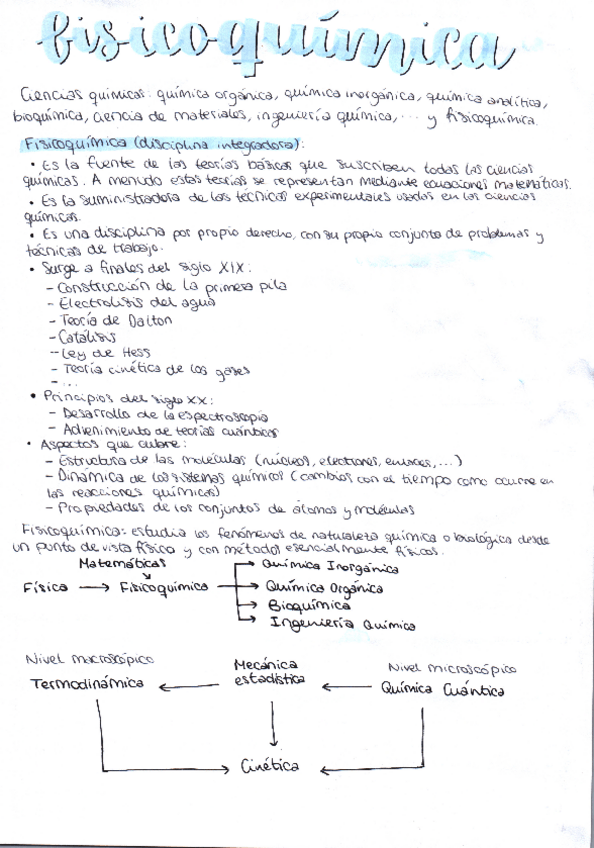 fisicoquímica
Ciencias químicas: química orgánica, química inorgánica, química analítica,
bioquímica, ciencia de materiales, ingeniería química, ... y fisicoquímica.
Fisicoquímica (disciplina integradora):
• Es la fuente de las teorías básicas que suscriben todas las ciencias
químicas. A menudo estas teorías se representan mediante ecuaciones matemáticas.
• Es la suministradora de las técnicas experimentales usadas en las ciencias
químicas.
• Es una disciplina por propio derecho, con su propio conjunto de problemas y
técnicas de trabajo.
• Surge a finales del siglo XIX:
- Construcción de la primera pila
- Electrolisis del agua
- Teoría de Dalton
- Catálisis
- Ley de Hess
- Teoría cinética de los gases
- ...
• Principios del siglo XX:
- Desarrollo de la espectroscopia
- Advenimiento de teorías cuánticas
• Aspectos que cubre:
- Estructura de las moléculas (núcleos, electrones, enlaces, ...)
- Dinámica de los sistemas químicos (cambios con el tiempo como ocurre en
las reacciones químicas)
- Propiedades de los conjuntos de átomos y moléculas
Fisicoquímica: estudia los fenómenos de naturaleza química o biológica desde
un punto de vista físico y con métodos esencialmente físicos.
Matemáticas
Física → Fisicoquímica → Química Inorgánica
Química Orgánica
Bioquímica
Ingeniería Química
Nivel macroscópico Mecánica Nivel microscópico
Termodinámica ← estadística ← Química Cuántica
Cinética